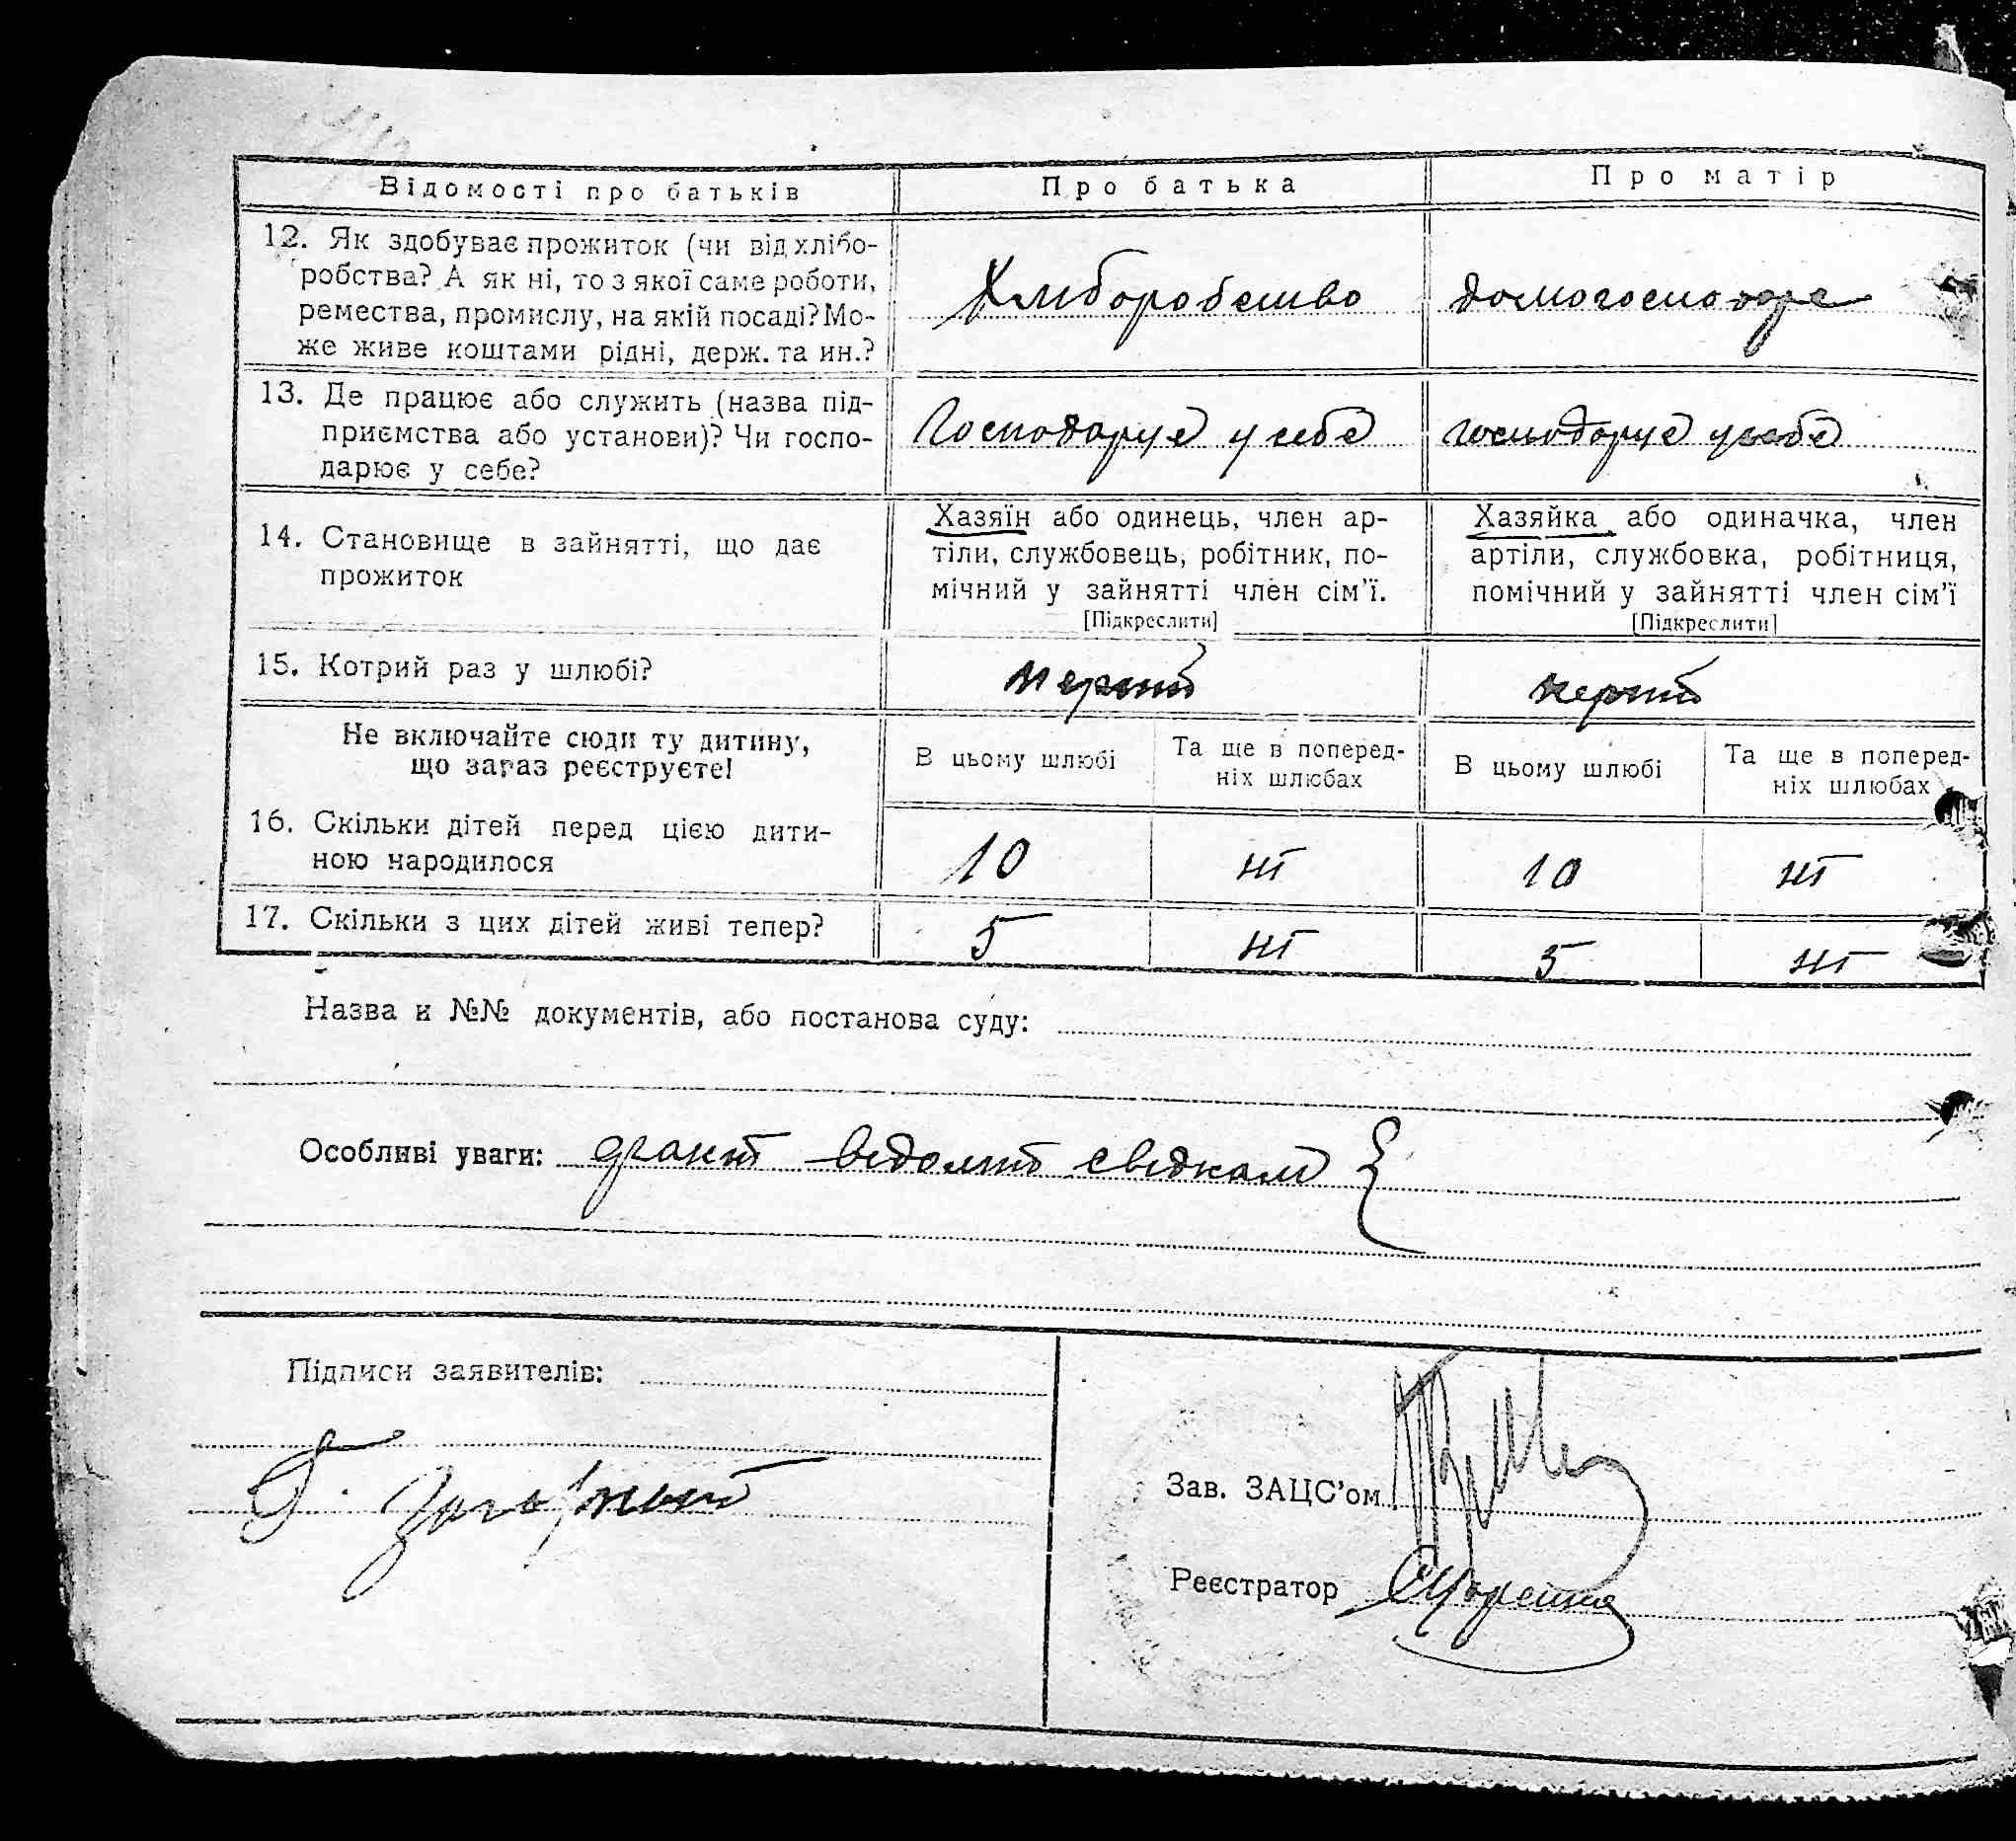 Відомості про батьків | Про батька | Про матір
12. Як здобуває прожиток (чи від хлібо-
робства? А як ні, то з якої саме роботи,
ремества, промислу, на якій посаді? Мо-
же живе коштами рідні, держ. та ин.?
Хліборобство
домогосподарс
13. Де працює або служить (назва під-
приємства або установи)? Чи госпо-
дарює у себе?
Господарує у себе
господарує у себе
14. Становище в зайнятті, що дає
прожиток
Хазяїн або одинець, член ар-
тіли, службовець, робітник, по-
мічний у зайнятті член сім'ї.
[Підкреслити]
Хазяйка або одиначка, член
артіли, службовка, робітниця,
помічний у зайнятті член сім'ї
[Підкреслити]
15. Котрий раз у шлюбі?
перший
перший
Не включайте сюди ту дитину,
що зараз реєструєте!
В цьому шлюбі
Та ще в поперед-
ніх шлюбах
В цьому шлюбі
Та ще в поперед-
ніх шлюбах
16. Скільки дітей перед цією дити-
ною народилося
10 | ні | 10 | ні
17. Скільки з цих дітей живі тепер?
5 | ні | 5 | ні
Назва и №№ документів, або постанова суду:
Особливі уваги: факт відомий свідкам
Підписи заявителів:
Зав. ЗАЦС'ом
Реєстратор